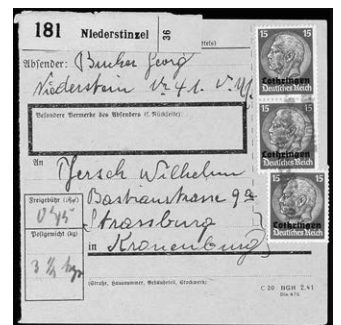 181 Niederstinzel 36
Absender: Bucher Georg
Niederstein Nr 41.
Besondere Vermerke des Absenders (f. Rückseite):
An
Jersch Wilhelm
Bastianstrasse 9a
Strassburg
in Kronenburg
Freigebühr
Postgewicht (kg)
3 ½ kg
(Straße, Hausnummer, Gebäudeteil, Stockwerk)
C 20 BGH 2.41
Din 476
15 15
Lothringen
Deutsches Reich
15 15
Lothringen
Deutsches Reich
15 15
Lothringen
Deutsches Reich